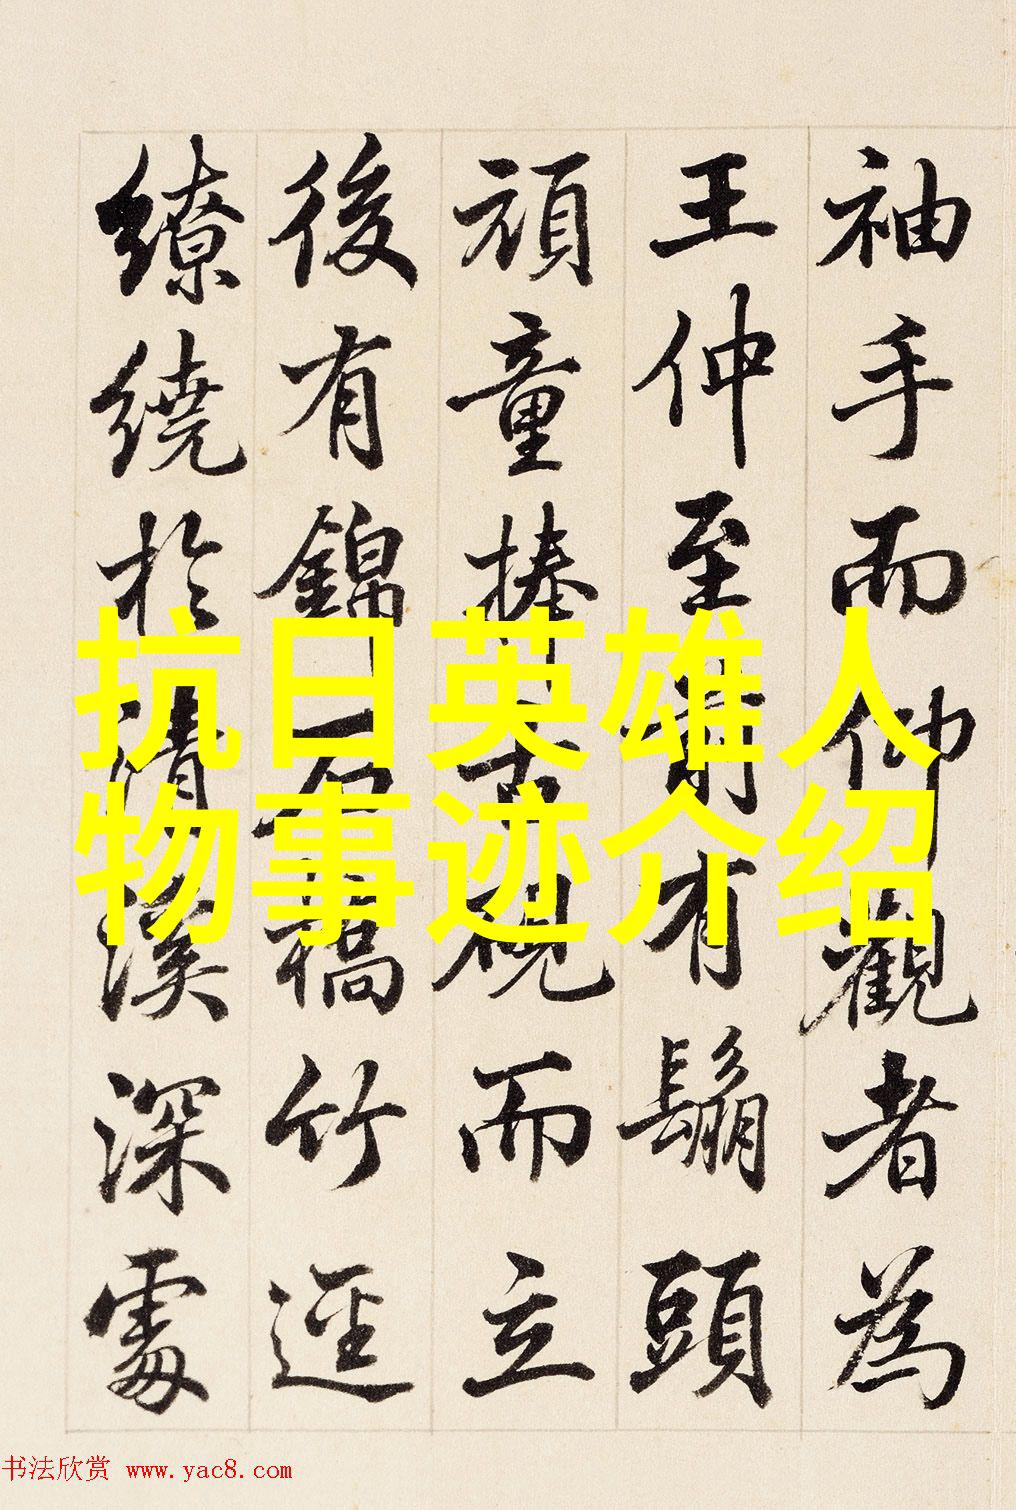 袖手而仰觀者為
王仲至前有鬅頭
頑童捧古硯而立
後有錦石橋竹逕
繚繞於清溪深處
抗日英雄人
物事迹介绍
书法欣赏 www.yac8.com